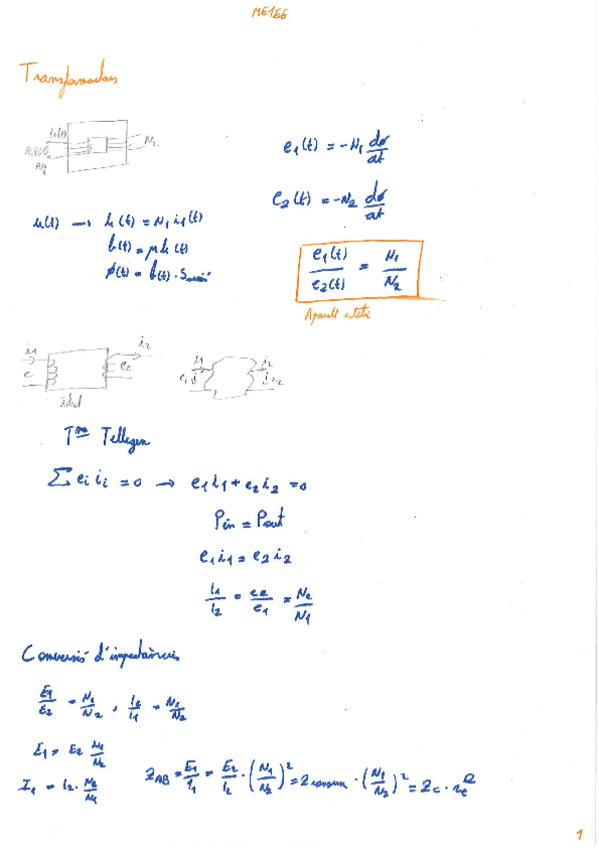 ME1EE
Transformadors
N2
N1
e1(t) = -N1 dø/dt
e2(t) = -N2 dø/dt
u(t) → h(t) = N1 i1(t)
b(t) = μ h(t)
ϕ(t) = b(t) ·
e1(t)/e2(t) = N1/N2
i1 i2
e e2
ideal
i1 i2
e1 e2
Tma Tellegen
∑ ei ii = 0 → e1 i1 + e2 i2 = 0
Pin = Pout
e1 i1 = e2 i2
i1/i2 = e2/e1 = N2/N1
Conversió d'impedàncies
E1/E2 = N1/N2, I2/I1 = N1/N2
E1 = E2 N1/N2
I1 = I2 · N2/N1
ZAB = E1/I1 = E2/I2 · (N1/N2)² = Z · (N1/N2)² = Zc ·
1